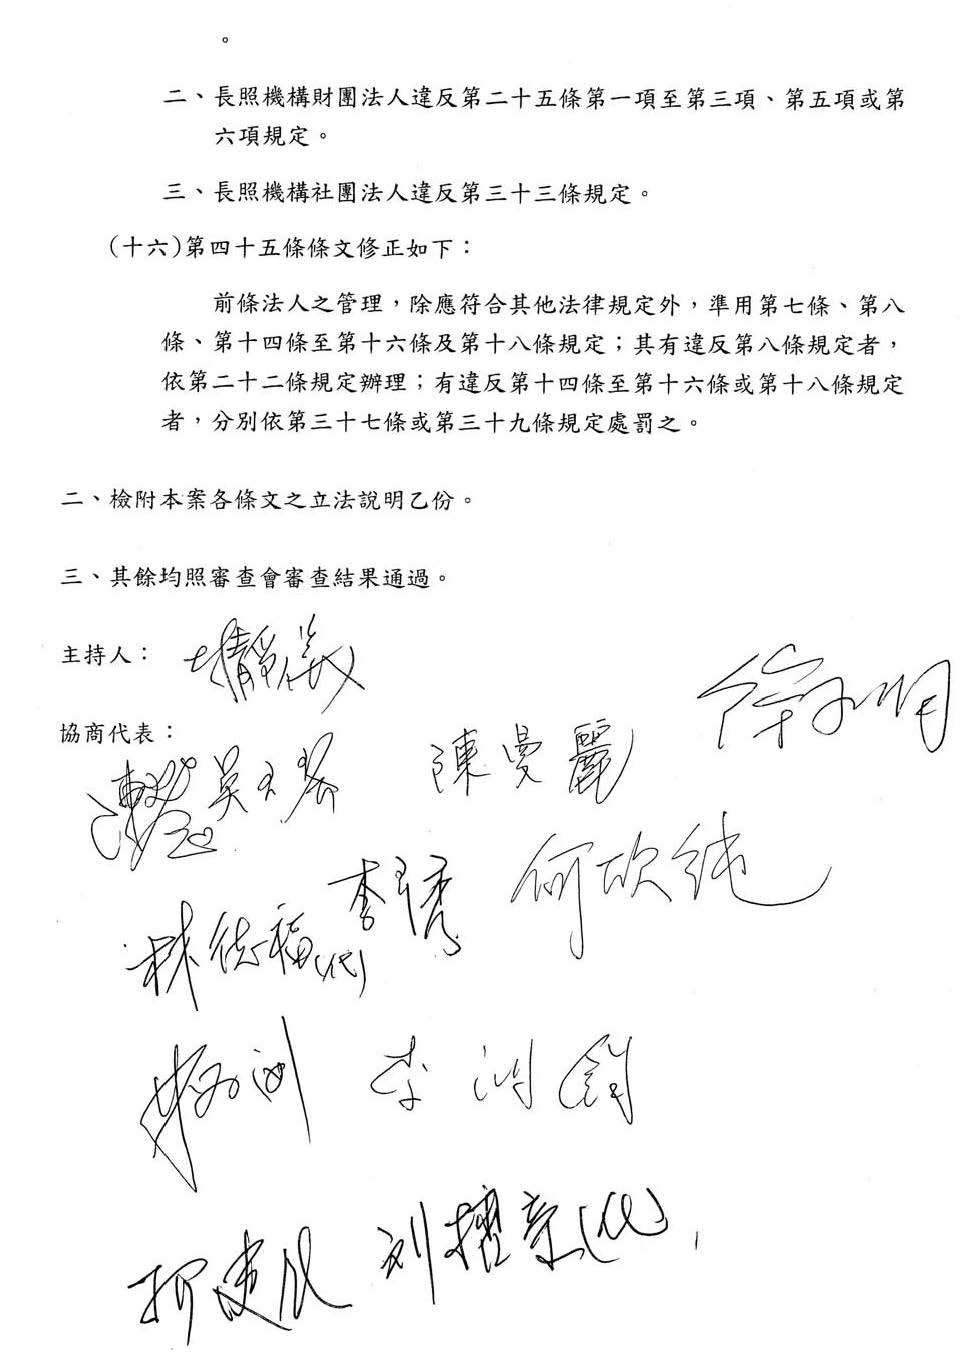 。
二、長照機構財團法人違反第二十五條第一項至第三項、第五項或第
六項規定。
三、長照機構社團法人違反第三十三條規定。
(十六)第四十五條條文修正如下：
前條法人之管理，除應符合其他法律規定外，準用第七條、第八
條、第十四條至第十六條及第十八條規定；其有違反第八條規定者，
依第二十二條規定辦理；有違反第十四條至第十六條或第十八條規定
者，分別依第三十七條或第三十九條規定處罰之。
二、檢附本案各條文之立法說明乙份。
三、其餘均照審查會審查結果通過。
主持人：
協商代表：
陳曼麗
何欣純
林德福(代)
李鴻鈞
柯建銘 劉櫂豪(代)